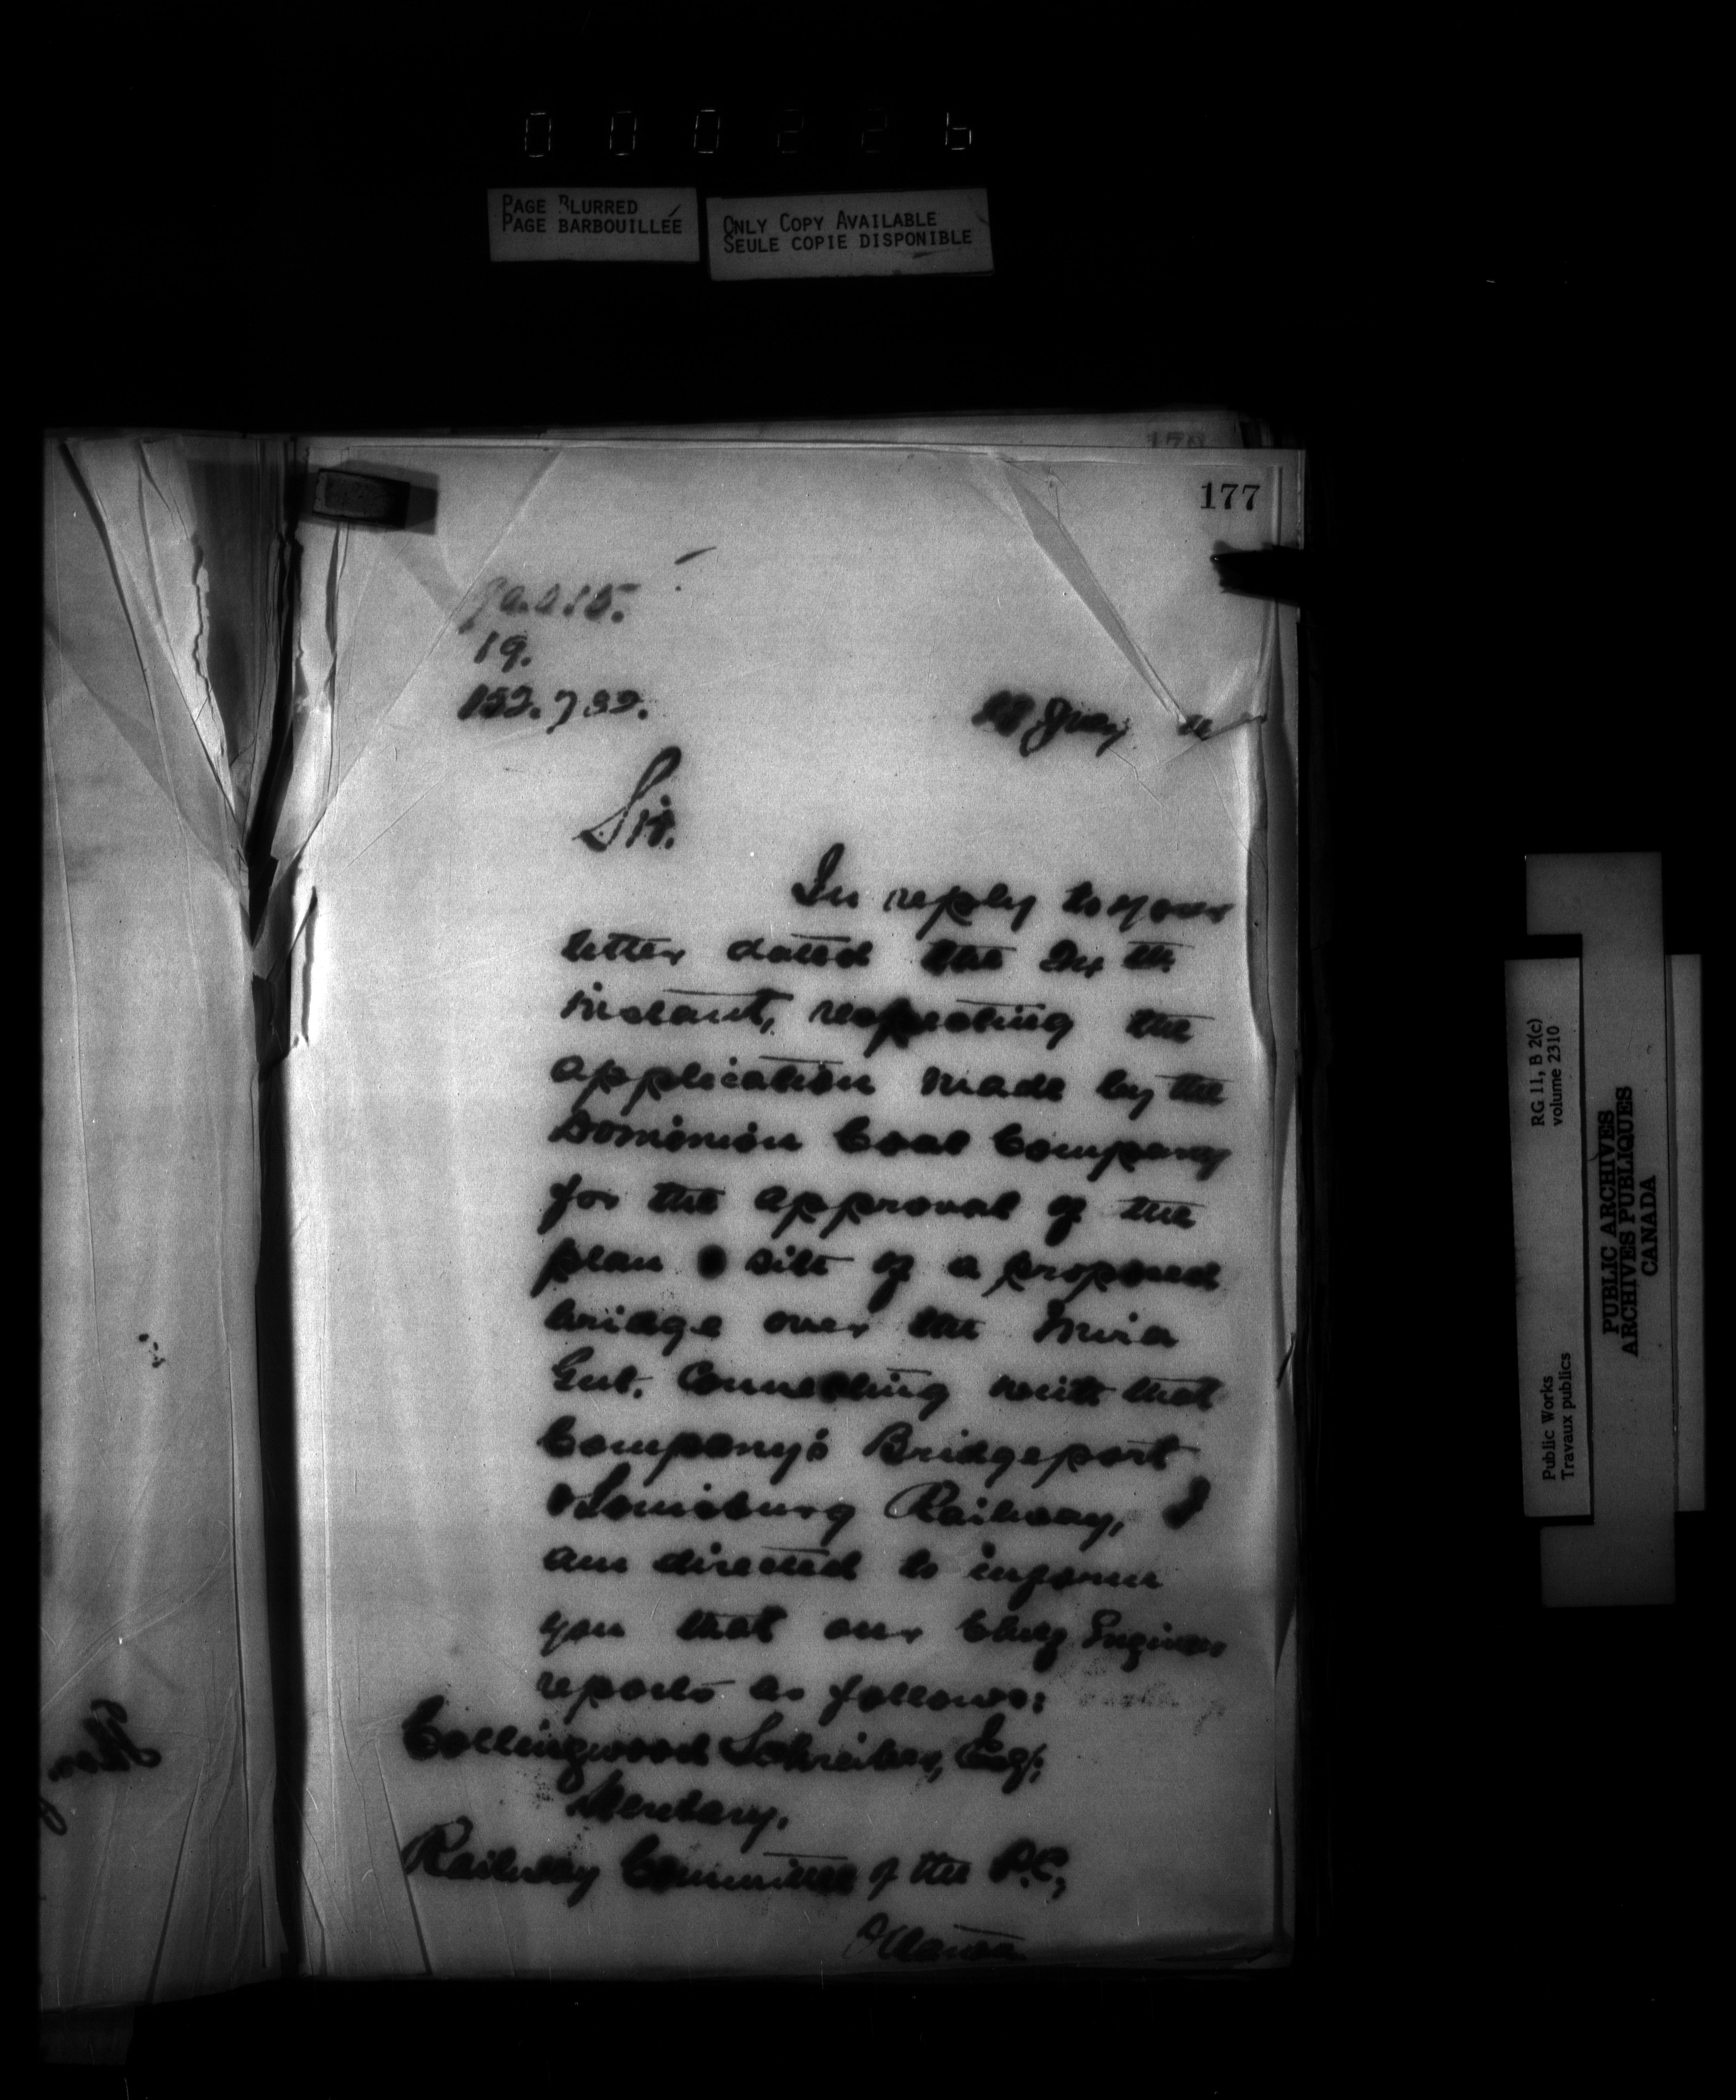 000226
PAGE BLURRED
PAGE BARBOUILLÉE
ONLY COPY AVAILABLE
SEULE COPIE DISPONIBLE
177
19.
152.732.
Sir.
In reply to your
letter dated the
instant, respecting the
application made by the
Dominion Coal Company
for the approval of the
plan & site of a proposed
bridge over the Mira
Gut. Connecting with that
Company's Bridgeport
& Louisburg Railway, I
am directed to inform
you that our Chief Engineer
reports as follows:
Collingwood Schreiber, Esq;
Secretary,
Railway Committee of the P.C.,
Ottawa
RG 11, B 2(c)
volume 2310
Public Works
Travaux publics
PUBLIC ARCHIVES
ARCHIVES PUBLIQUES
CANADA